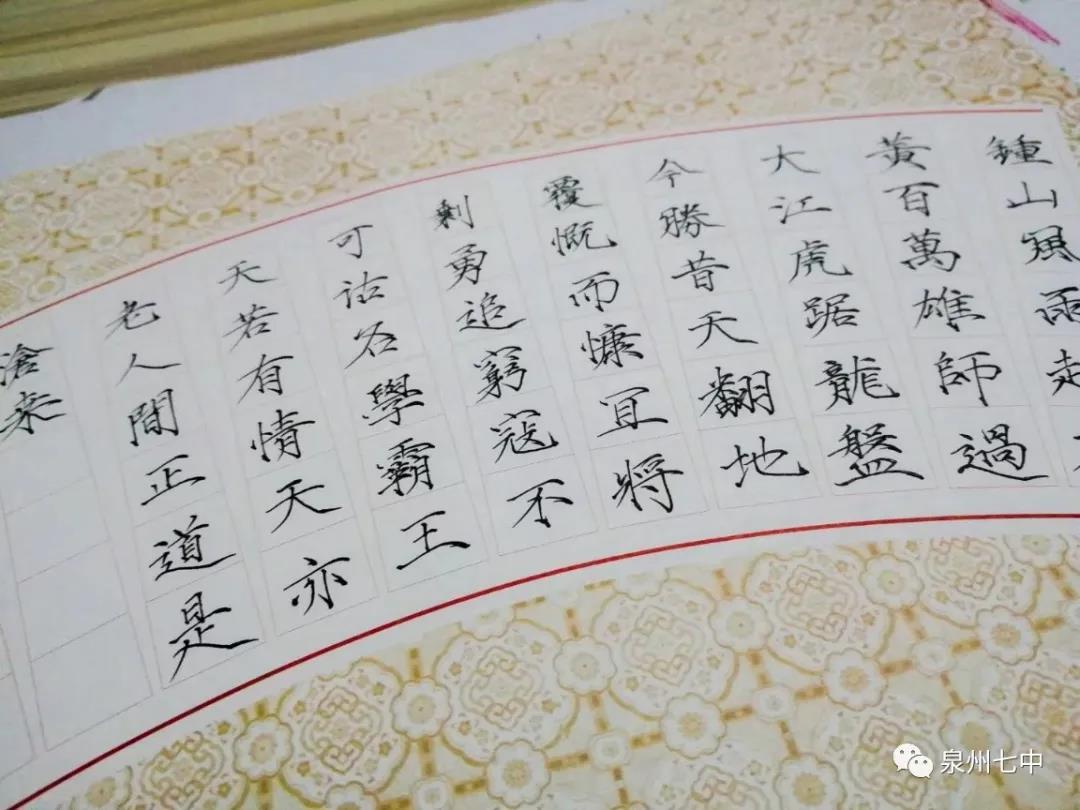 鍾山風雨起
黄百萬雄師過
大江虎踞龍盤
今勝昔天翻地
覆慨而慷宜將
剩勇追窮寇不
可沽名學霸王
天若有情天亦
老人間正道是
滄桒
泉州七中